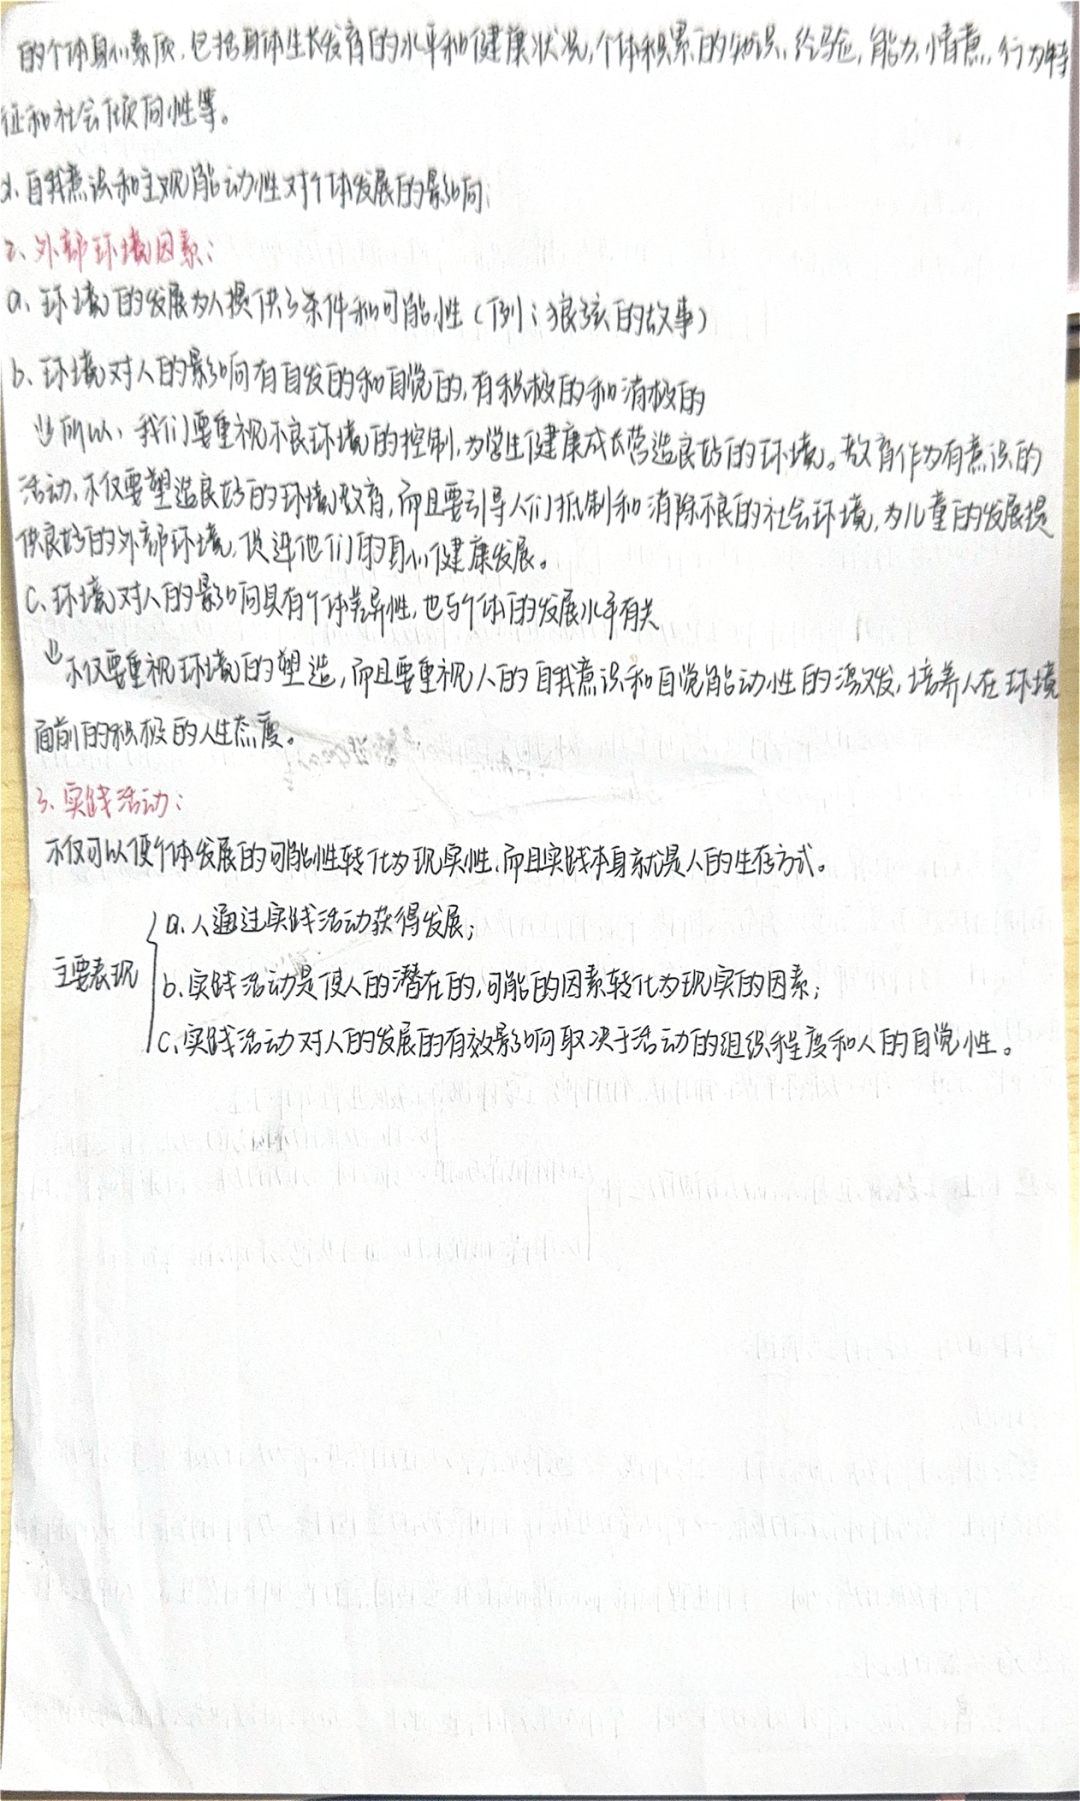 的个体身心素质,包括身体生长发育的水平和健康状况,个体积累的知识、经验,能力,情意,行为特
征和社会倾向性等。
d、自我意识和主观能动性对个体发展的影响;
2、外部环境因素:
a、环境的发展为人提供了条件和可能性(例:狼孩的故事)
b、环境对人的影响有自发的和自觉的,有积极的和消极的
↓所以、我们要重视不良环境的控制,为学生健康成长营造良好的环境。教育作为有意识的
活动,不仅要塑造良好的环境教育,而且要引导人们抵制和消除不良的社会环境,为儿童的发展提
供良好的外部环境,促进他们的身心健康发展。
C、环境对人的影响具有个体差异性,也与个体的发展水平有关
↓不仅要重视环境的塑造,而且要重视人的自我意识和自觉能动性的激发,培养人在环境
面前的积极的人生态度。
3、实践活动:
不仅可以使个体发展的可能性转化为现实性,而且实践本身就是人的生存方式。
a、人通过实践活动获得发展;
主要表现 b、实践活动是使人的潜在的,可能的因素转化为现实的因素;
C、实践活动对人的发展的有效影响取决于活动的组织程度和人的自觉性。